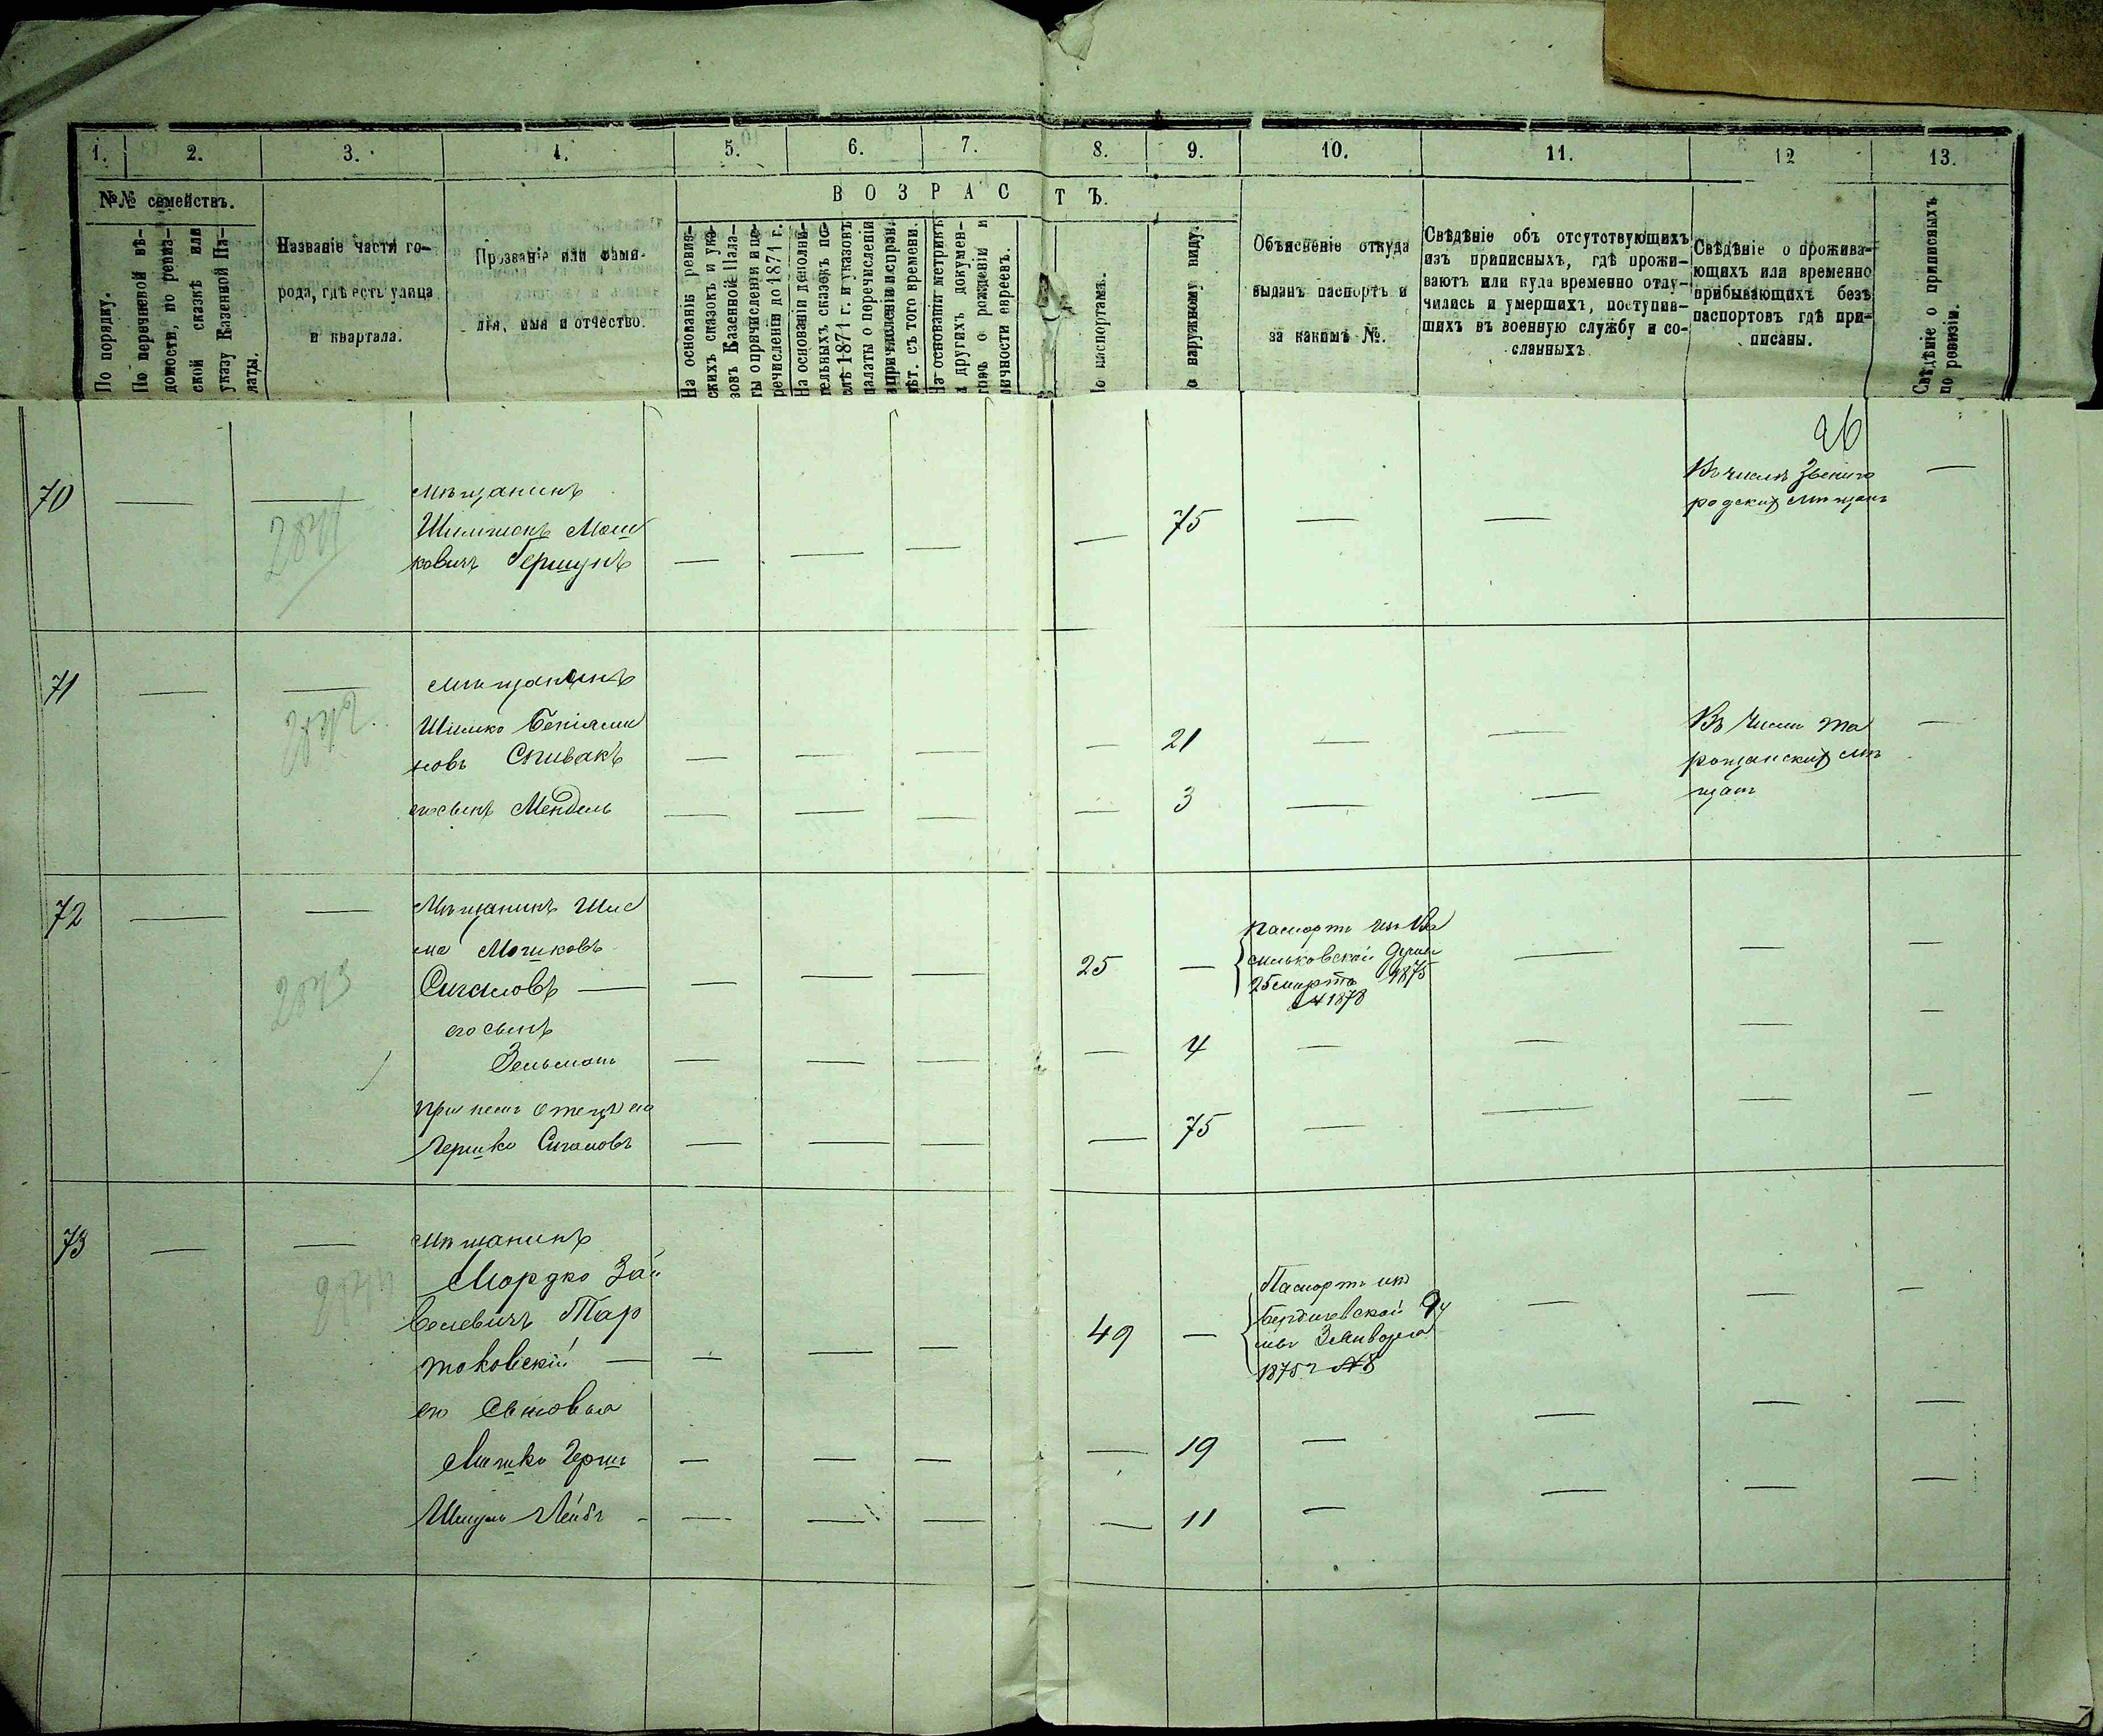 1. 2. 3. 4. 5. 6. 7. 8. 9. 10. 11. 12 13.
№№ семействъ.
По порядку.
По перечневой вѣ-
домости, по ревиз-
ской сказкѣ или
указу Казенной Па-
латы.
Названіе части го-
рода, гдѣ есть улица
и квартала.
Прозваніе или фами-
лія, имя и отчество.
ВОЗРАСТЪ.
На основаніи ревиз-
скихъ сказокъ и ука-
зовъ Казенной Пала-
ты о причисленіи и пе-
речисленіи до 1871 г.
На основаніи дополни-
тельныхъ сказокъ по-
слѣ 1871 г. и указовъ
палаты о перечисленіи
и причисленіи и справ.
лѣт. съ того времени.
На основаніи метрикъ
и другихъ докумен-
товъ о рожденіи и
личности евреевъ.
По паспортамъ.
о наружному виду.
Объясненіе откуда
выданъ паспортъ и
за какимъ №.
Свѣдѣніе объ отсутствующихъ
изъ приписныхъ, гдѣ прожи-
ваютъ или куда временно отлу-
чились и умершихъ, поступив-
шихъ въ военную службу и со-
сланныхъ.
Свѣдѣніе о прожива-
ющихъ или временно
прибывающихъ безъ
паспортовъ гдѣ при-
писаны.
Свѣдѣніе о приписныхъ
по ревизіи.
26
70
2871
мѣщанинъ
Шимшонъ Мош
ковичъ Гершунъ
75
Въ числѣ Звениго
родских мѣщанъ
71
2872
мѣщанинъ
Шимко Беніями
новъ Спивакъ
21
его сынъ Мендель
3
Въ числѣ Та
ращанских мѣ
щанъ
72
2873
Мѣщанинъ
Мошковъ
Сигаловъ
25
паспортъ изъ Ва
сильковской Думы
25 марта 1875
№ 1878
его сынъ
Зельманъ
4
при немъ отецъ его
Гершко Сигаловъ
75
73
2874
мѣщанинъ
Мордко Зай
велевичъ Тар
таковскій
49
Паспортъ из
Бердичевской Ду
мы
1875 г №8
его сыновья
Мошко Герш
19
Шмуль Лейбъ
11